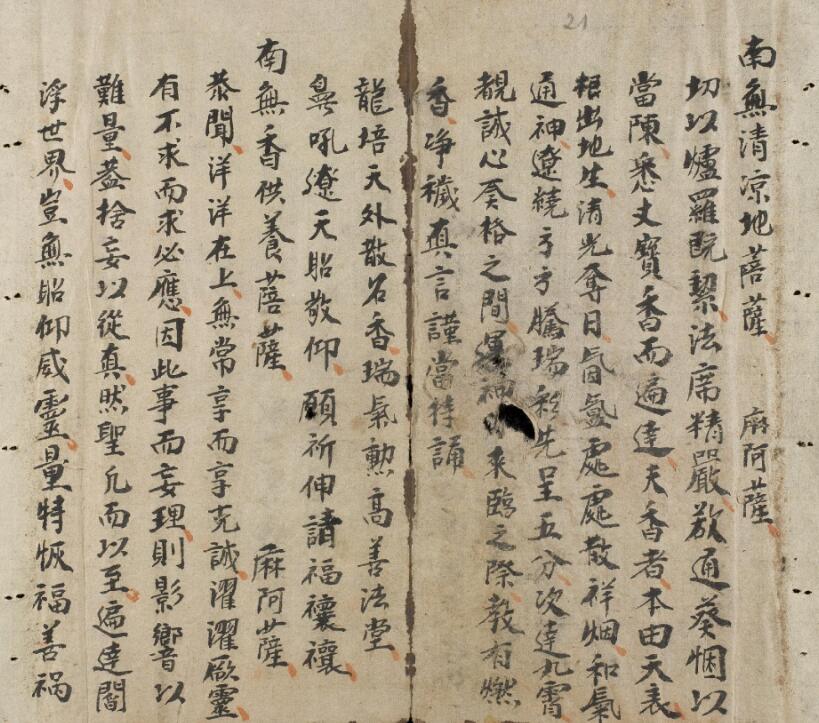 21
南無清凉地菩薩　麻阿薩
切以爐羅既潔法席精嚴欲通葵悃以
當陳悉丈寶香而遍達夫香者本由天表
根出地生清光奪日氤氳處處散祥烟和氣
通神遼繞亐亐騰瑞彩先呈五分次達九霄
覩誠心奏格之間 神 來臨之際教有燃
香净穢真言謹當持誦
龍培天外散名香瑞氣勲高善法堂
鼻吼遼天昭敬仰願祈伸請福禳禳
南無香供養菩薩　麻阿薩
恭聞洋洋在上無常享而享克誠濯濯厥靈
有不求而求必應因此事而妄理則影響以
難量盖捨妄以從真然聖凡而以至遍達閻
浮世界豈無昭仰威靈量特恢福善祸